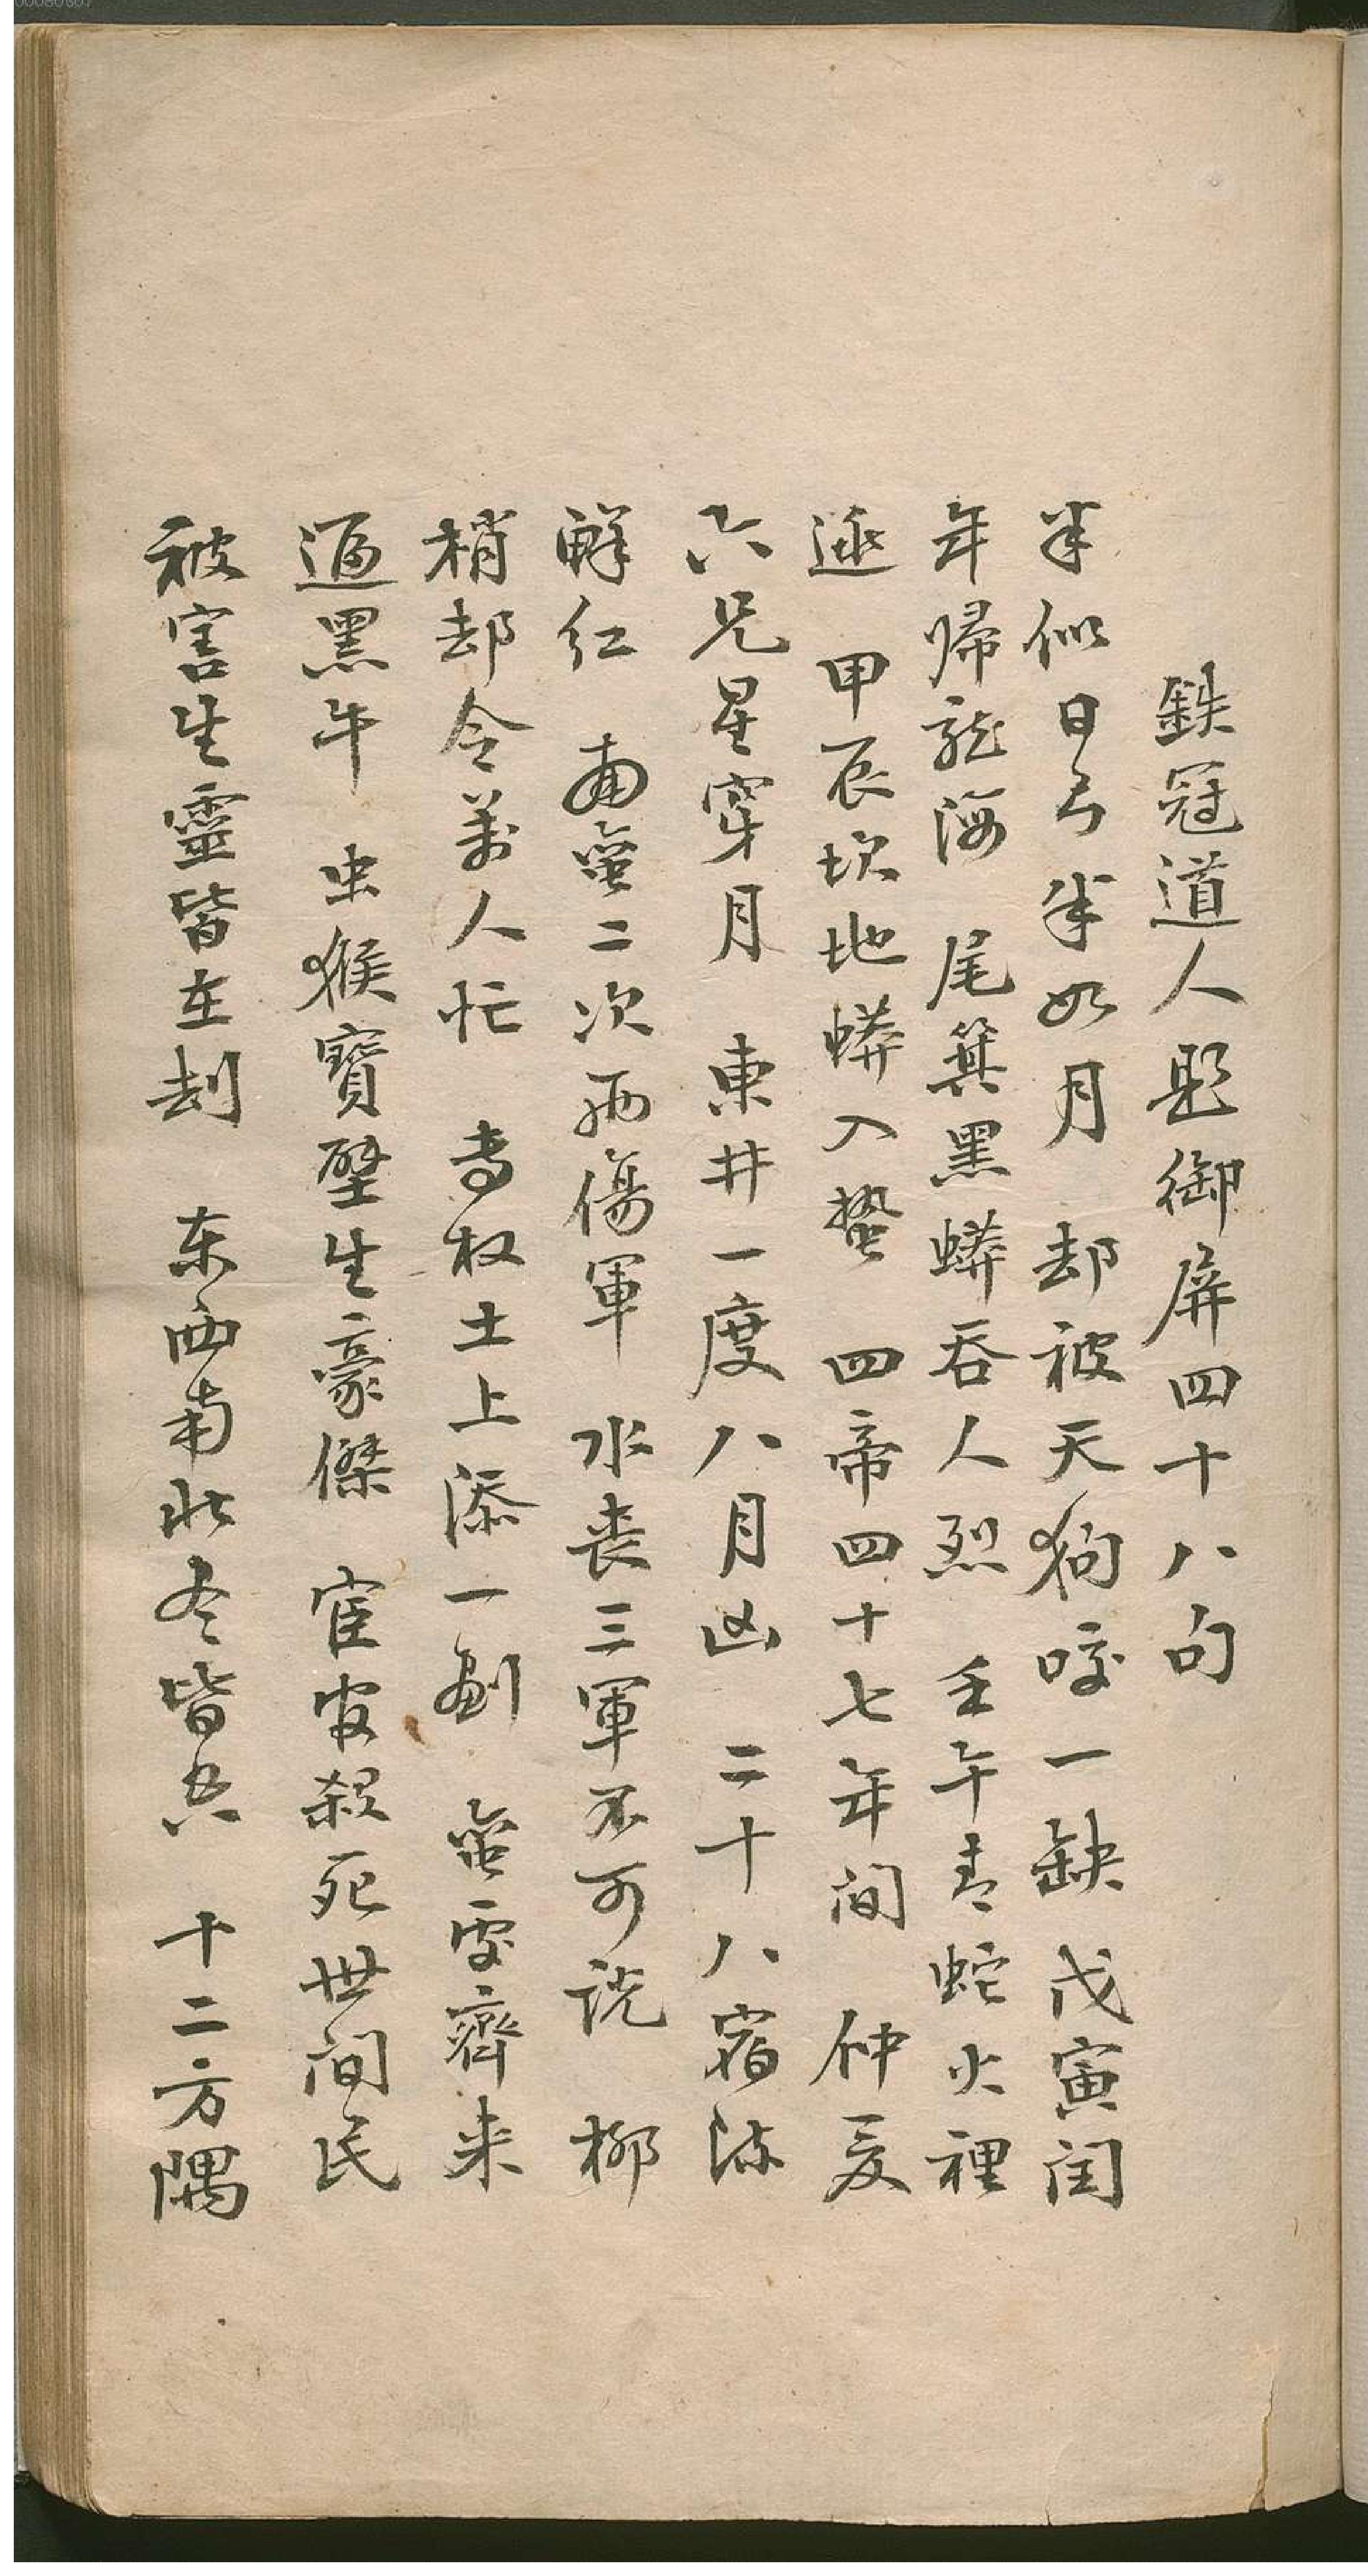 鉄冠道人题御屏四十八句
半似日弓半如月 却被天狗咬一缺 戊寅闰
年帰龍海 尾箕黑蟒吞人烈 壬午青蛇火裡
逃 甲辰坎地蟒入蛰 四帝四十七年间 仲夏
六兄星穿月 東井一度八月凶 二十八宿添
鮮红 南蛮二次两傷軍 水丧三軍不可说 柳
梢却令萬人忙 专权土上添一劍 蛮霊齊来
逼黑牛 虫猴寳壁生豪傑 宦官殺死世间民
被害生靈皆在刦 东西南北冬皆 十二方隅